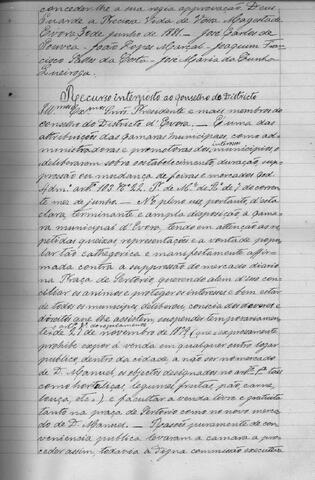 conceder-lhe a sua regia approvação. Deus
Guarde a Preciosa Vida de Vossa Magestade.
Evora 30 de junho de 1881. — José Carlos de
Gouvea — João Lopes Marçal — Joaquim Fran-
cisco Salles da Costa — José Maria da Cunha
Queiroga.
Recurso interposto ao conselho de Districto
Ill.mo Ex.mo Snr. Presidente e mais membros do
conselho do Districto d'Evora. — É uma das
attribuições das Camaras Municipaes, como ad-
ministradoras e promotoras dos interesses municipaes o
deliberarem sobre estabelecimento, duração, sup-
pressão ou mudança de feiras e mercados Cod.
Adm. art.º 103 nº 22.
te mez de junho. — No pleno uso, portanto, d'esta
clara, terminante e ampla disposição a cama-
ra municipal d'Evora, tendo em attenção as re-
petidas queixas, representações e a vontade popu-
lar tão cathegorica e manifestamente affir-
mada contra a suppressão do mercado diario
na Praça de Sertorio, querendo alem d'isso con-
ciliar os animos e proteger os interesses e bem estar
de todos os municipes deliberou, conscia dos deveres e
direitos que lhe assistem, suspender temporariamen-
te
de 21 de novembro de 1879 (que expressamente
prohibe expor á venda em qualquer outro logar
publico, dentro da cidade a não ser no mercado
de D. Manuel, os objectos designados no art.º 1º taes
como hortaliças, legumes, frutas, pão, carne,
louça, etc.) e facultar a venda livre e gratuita
tanto na praça de Sertorio como no novo merca-
do de D. Manuel. — Rasões puramente de con-
veniencia publica levaram a camara a pro-
ceder assim, todavia a Digna commissão executiva